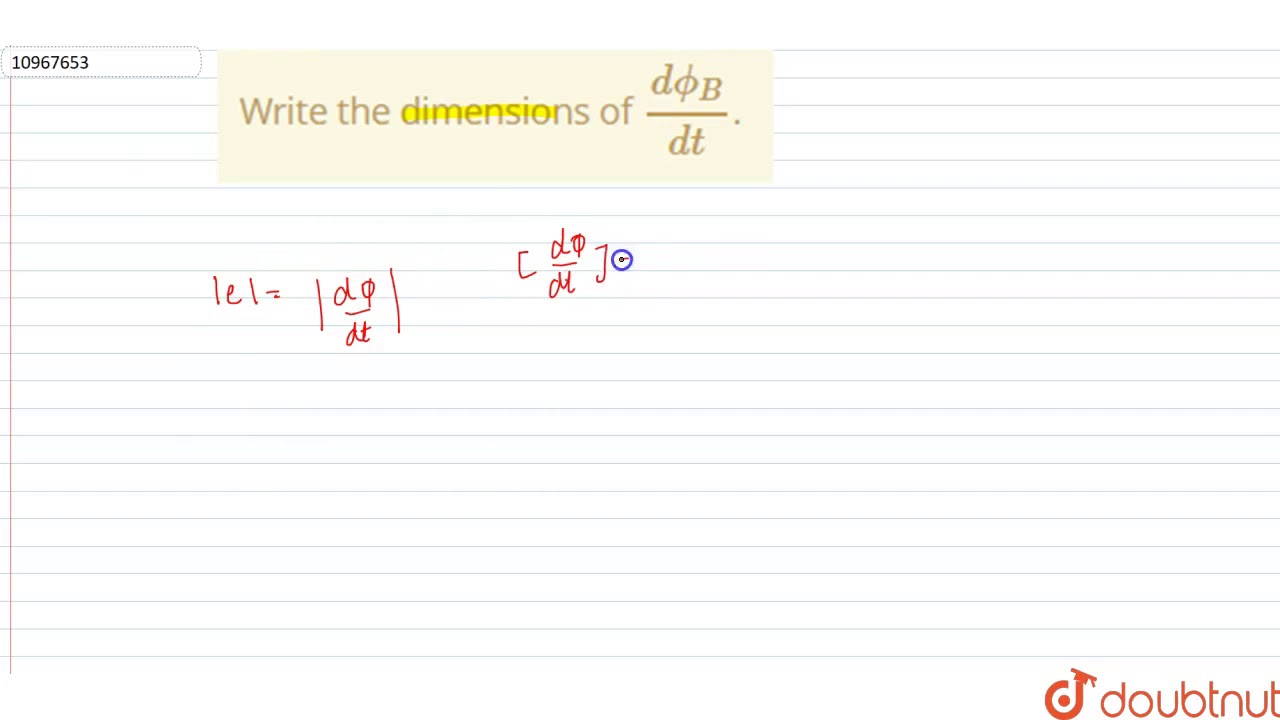 10967653
Write the dimensions of dϕ_B/dt.
|e| = |dφ/dt|
[dφ/dt]
doubtnut